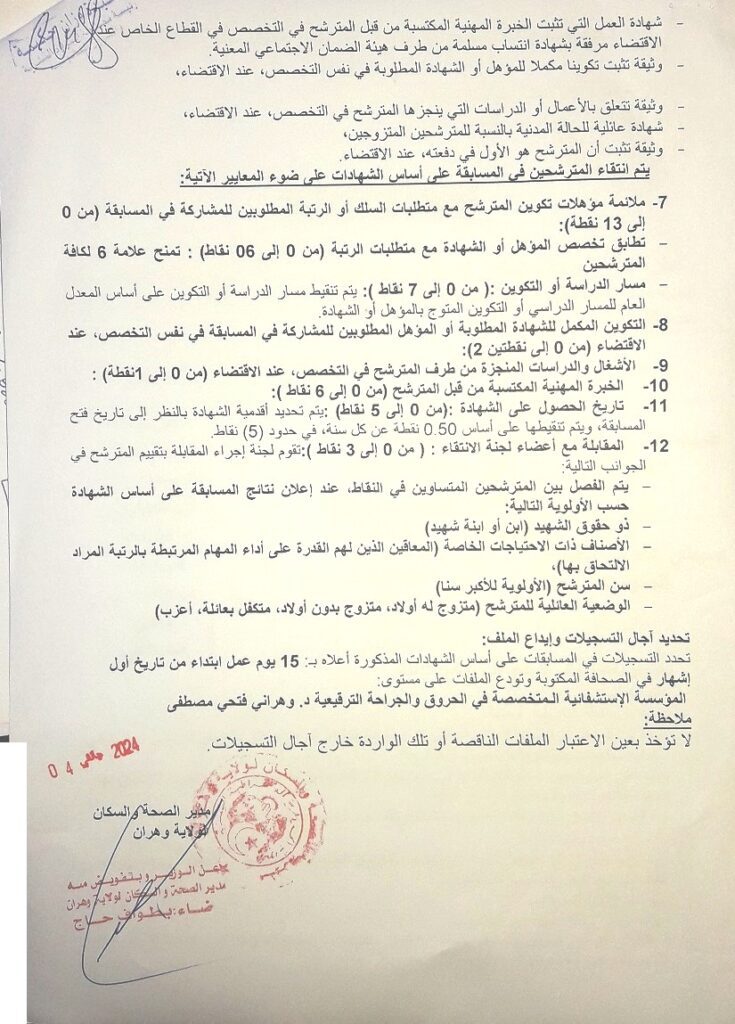 - شهادة العمل التي تثبت الخبرة المهنية المكتسبة من قبل المترشح في التخصص في القطاع الخاص عند
الاقتضاء مرفقة بشهادة انتساب مسلمة من طرف هيئة الضمان الاجتماعي المعنية.
- وثيقة تثبت تكوينا مكملا للمؤهل أو الشهادة المطلوبة في نفس التخصص، عند الاقتضاء،
- وثيقة تتعلق بالأعمال أو الدراسات التي ينجزها المترشح في التخصص، عند الاقتضاء،
- شهادة عائلية للحالة المدنية بالنسبة للمترشحين المتزوجين،
- وثيقة تثبت أن المترشح هو الأول في دفعته، عند الاقتضاء.
يتم انتقاء المترشحين في المسابقة على أساس الشهادات على ضوء المعايير الآتية:
7- ملائمة مؤهلات تكوين المترشح مع متطلبات السلك أو الرتبة المطلوبين للمشاركة في المسابقة (من 0
إلى 13 نقطة):
- تطابق تخصص المؤهل أو الشهادة مع متطلبات الرتبة (من 0 إلى 06 نقاط) : تمنح علامة 6 لكافة
المترشحين
- مسار الدراسة أو التكوين :( من 0 إلى 7 نقاط ): يتم تنقيط مسار الدراسة أو التكوين على أساس المعدل
العام للمسار الدراسي أو التكوين المتوج بالمؤهل أو الشهادة.
8- التكوين المكمل للشهادة المطلوبة أو المؤهل المطلوبين للمشاركة في المسابقة في نفس التخصص، عند
الاقتضاء (من 0 إلى نقطتين 2):
9- الأشغال والدراسات المنجزة من طرف المترشح في التخصص، عند الاقتضاء (من 0 إلى 1نقطة) :
10- الخبرة المهنية المكتسبة من قبل المترشح (من 0 إلى 6 نقاط ):
11- تاريخ الحصول على الشهادة :(من 0 إلى 5 نقاط) :يتم تحديد أقدمية الشهادة بالنظر إلى تاريخ فتح
المسابقة، ويتم تنقيطها على أساس 0.50 نقطة عن كل سنة، في حدود (5) نقاط.
12- المقابلة مع أعضاء لجنة الانتقاء : ( من 0 إلى 3 نقاط ):تقوم لجنة إجراء المقابلة بتقييم المترشح في
الجوانب التالية:
- يتم الفصل بين المترشحين المتساوين في النقاط، عند إعلان نتائج المسابقة على أساس الشهادة
حسب الأولوية التالية:
- ذو حقوق الشهيد (ابن أو ابنة شهيد)
- الأصناف ذات الاحتياجات الخاصة (المعاقين الذين لهم القدرة على أداء المهام المرتبطة بالرتبة المراد
الالتحاق بها)،
- سن المترشح (الأولوية للأكبر سنا)
- الوضعية العائلية للمترشح (متزوج له أولاد، متزوج بدون أولاد، متكفل بعائلة، أعزب)
تحديد آجال التسجيلات وإيداع الملف:
تحدد التسجيلات في المسابقات على أساس الشهادات المذكورة أعلاه بـ: 15 يوم عمل ابتداء من تاريخ أول
إشهار في الصحافة المكتوبة وتودع الملفات على مستوى:
المؤسسة الإستشفائية المتخصصة في الحروق والجراحة الترقيعية د. وهراني فتحي مصطفى
ملاحظة:
لا تؤخذ بعين الاعتبار الملفات الناقصة أو تلك الواردة خارج آجال التسجيلات.
0 4 جانفي 2024
مدير الصحة والسكان
لولاية وهران
عن الوزير وبتفويض منه
مدير الصحة والسكان لولاية وهران